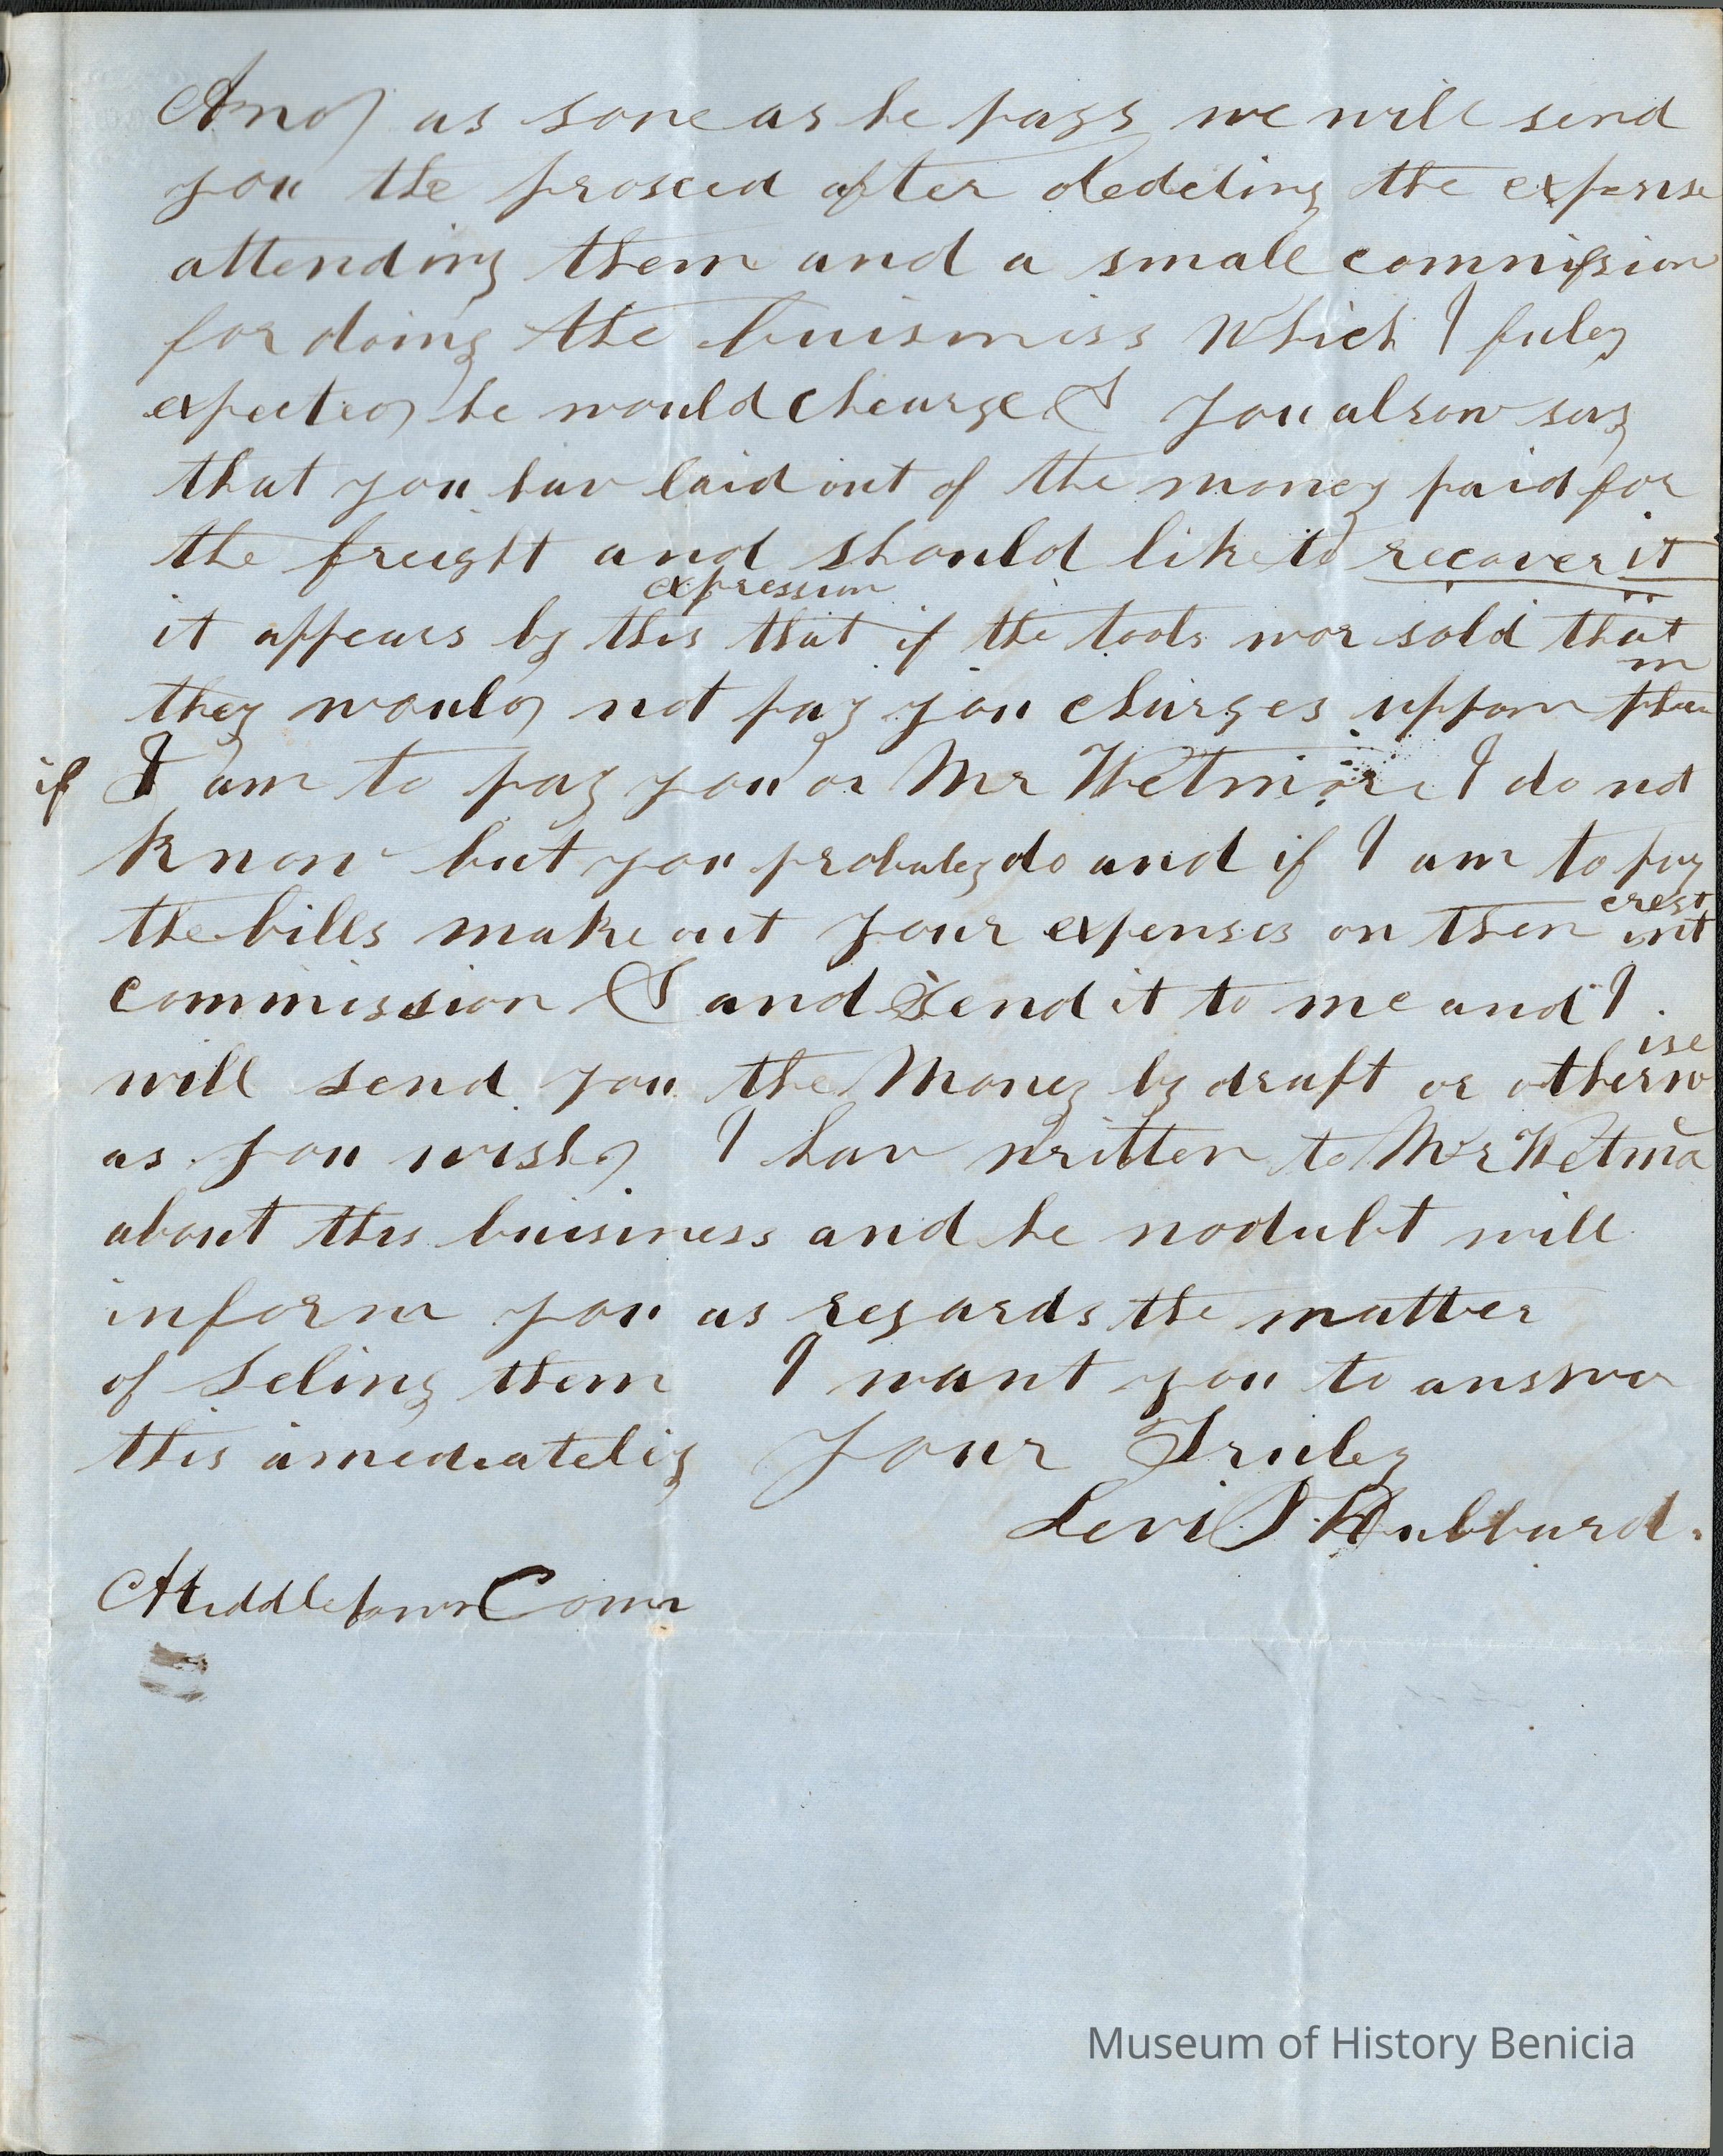 And as sone as he pays we will send
you the prosced after dedcting the expense
attending them and a small commission
for doing the buisniss Which I fuley
expected he would chearge & You alsow say
that you hav laid out of the money paid for
the freight and should like to recover it
expression
it appears by this that if the tools wor sold that
they would not pay you charges uppon them
if I am to pay you or Mr Wetmore I do not
know but you probaley do and if I am to pay
the bills make out your expenses on then interest
commission & and Send it to me and I
will send you the Money by draft or otherwise
as you wish I hav written to Mr Wetmo
about this buisiness and he nodubt will
inform you as regards the matter
of Seling them I want you to answer
this amediateliy Your Truley
Levi S Hubbard.
Middletown Conn
Museum of History Benicia